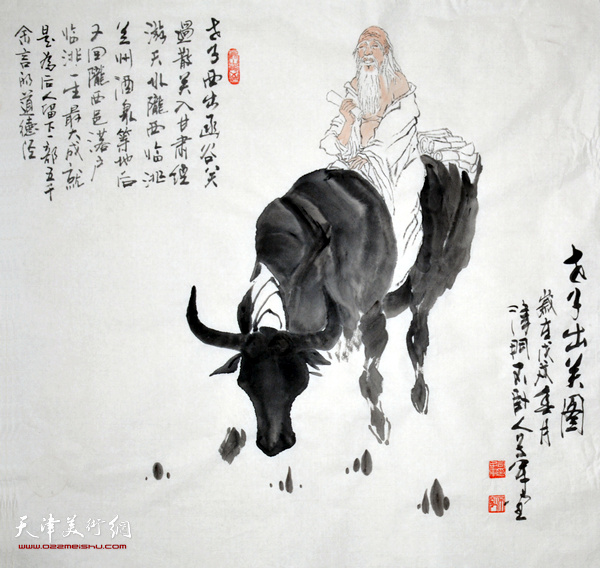 老子西出函谷关
過散关入甘肅經
游天水隴西临洮
兰州酒泉等地后
又回隴西邑落户
临洮一生最大成就
是為后人留下一部五千
余言的道德经
老子出关圖
歲在戊戌春月
津門
天津美術網
www.022meishu.com